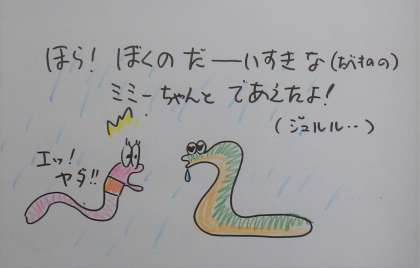 ほら! ぼくの だーいすきな(たべもの)
ミミーちゃんと であえたよ!
(ジュルル‥)
エッ!
ヤダ!!